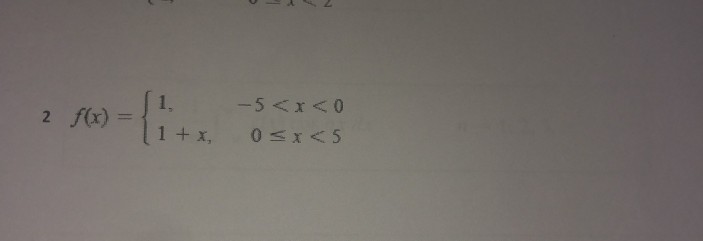 2 f(x) = { 1, −5 < x < 0
1 + x, 0 ≤ x < 5